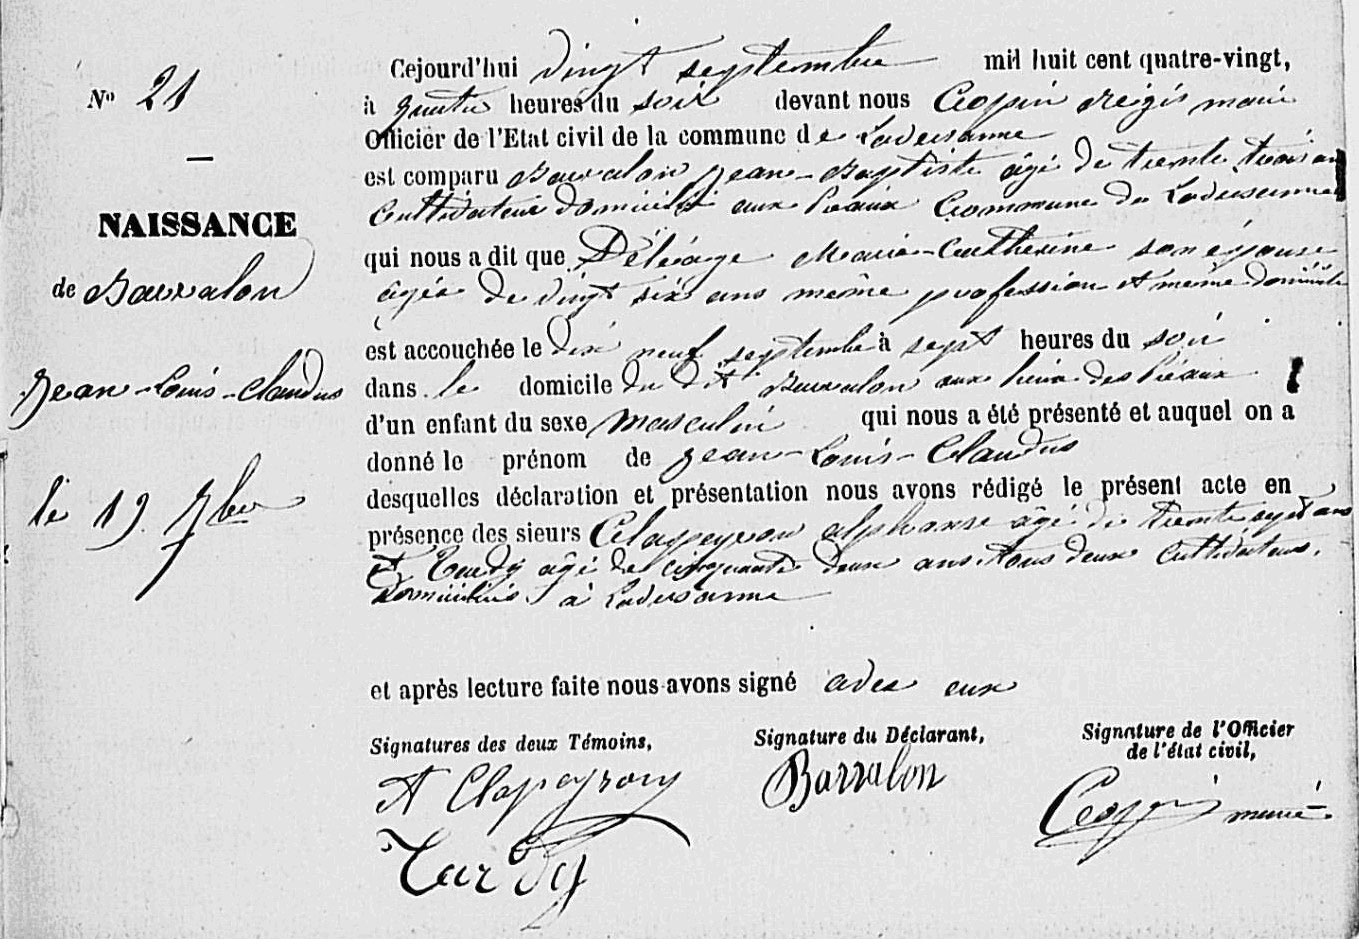 N° 21
—
NAISSANCE
de Barralon
Jean-Louis-Claudus
le 19 7bre
Cejourd'hui vingt septembre mil huit cent quatre-vingt,
à quatre heures du soir devant nous régis maire
Officier de l'Etat civil de la commune de Ladevisanne
est comparu Barralon Jean-Baptiste âgé de trente trois ans
cultivateur domicilié aux Préaux Commune de
qui nous a dit que Déléage Marie-Catherine son épouse
âgée de vingt six ans même profession et même domicile
est accouchée le dix neuf septembre à sept heures du soir
dans le domicile du dit Barralon aux lieux des Préaux
d'un enfant du sexe masculin qui nous a été présenté et auquel on a
donné le prénom de Jean-Louis-Claudus
desquelles déclaration et présentation nous avons rédigé le présent acte en
présence des sieurs Clapeyron alphonse âgé de trente sept ans
Et Tardy âgé de cinquante deux ans. tous deux cultivateurs.
domiciliés à
et après lecture faite nous avons signé avec eux
Signatures des deux Témoins,
Signature du Déclarant,
Signature de l'Officier
de l'état civil,
A Clapeyron
Barralon
maire
Tardy